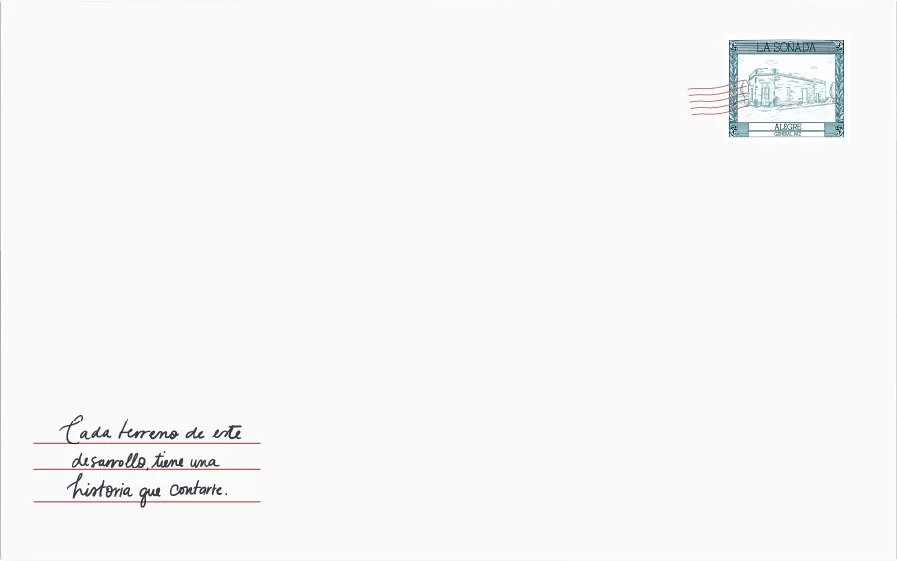 LA SOÑADA
ALEGRE
Cada terreno de este
desarrollo, tiene una
historia que contarte.